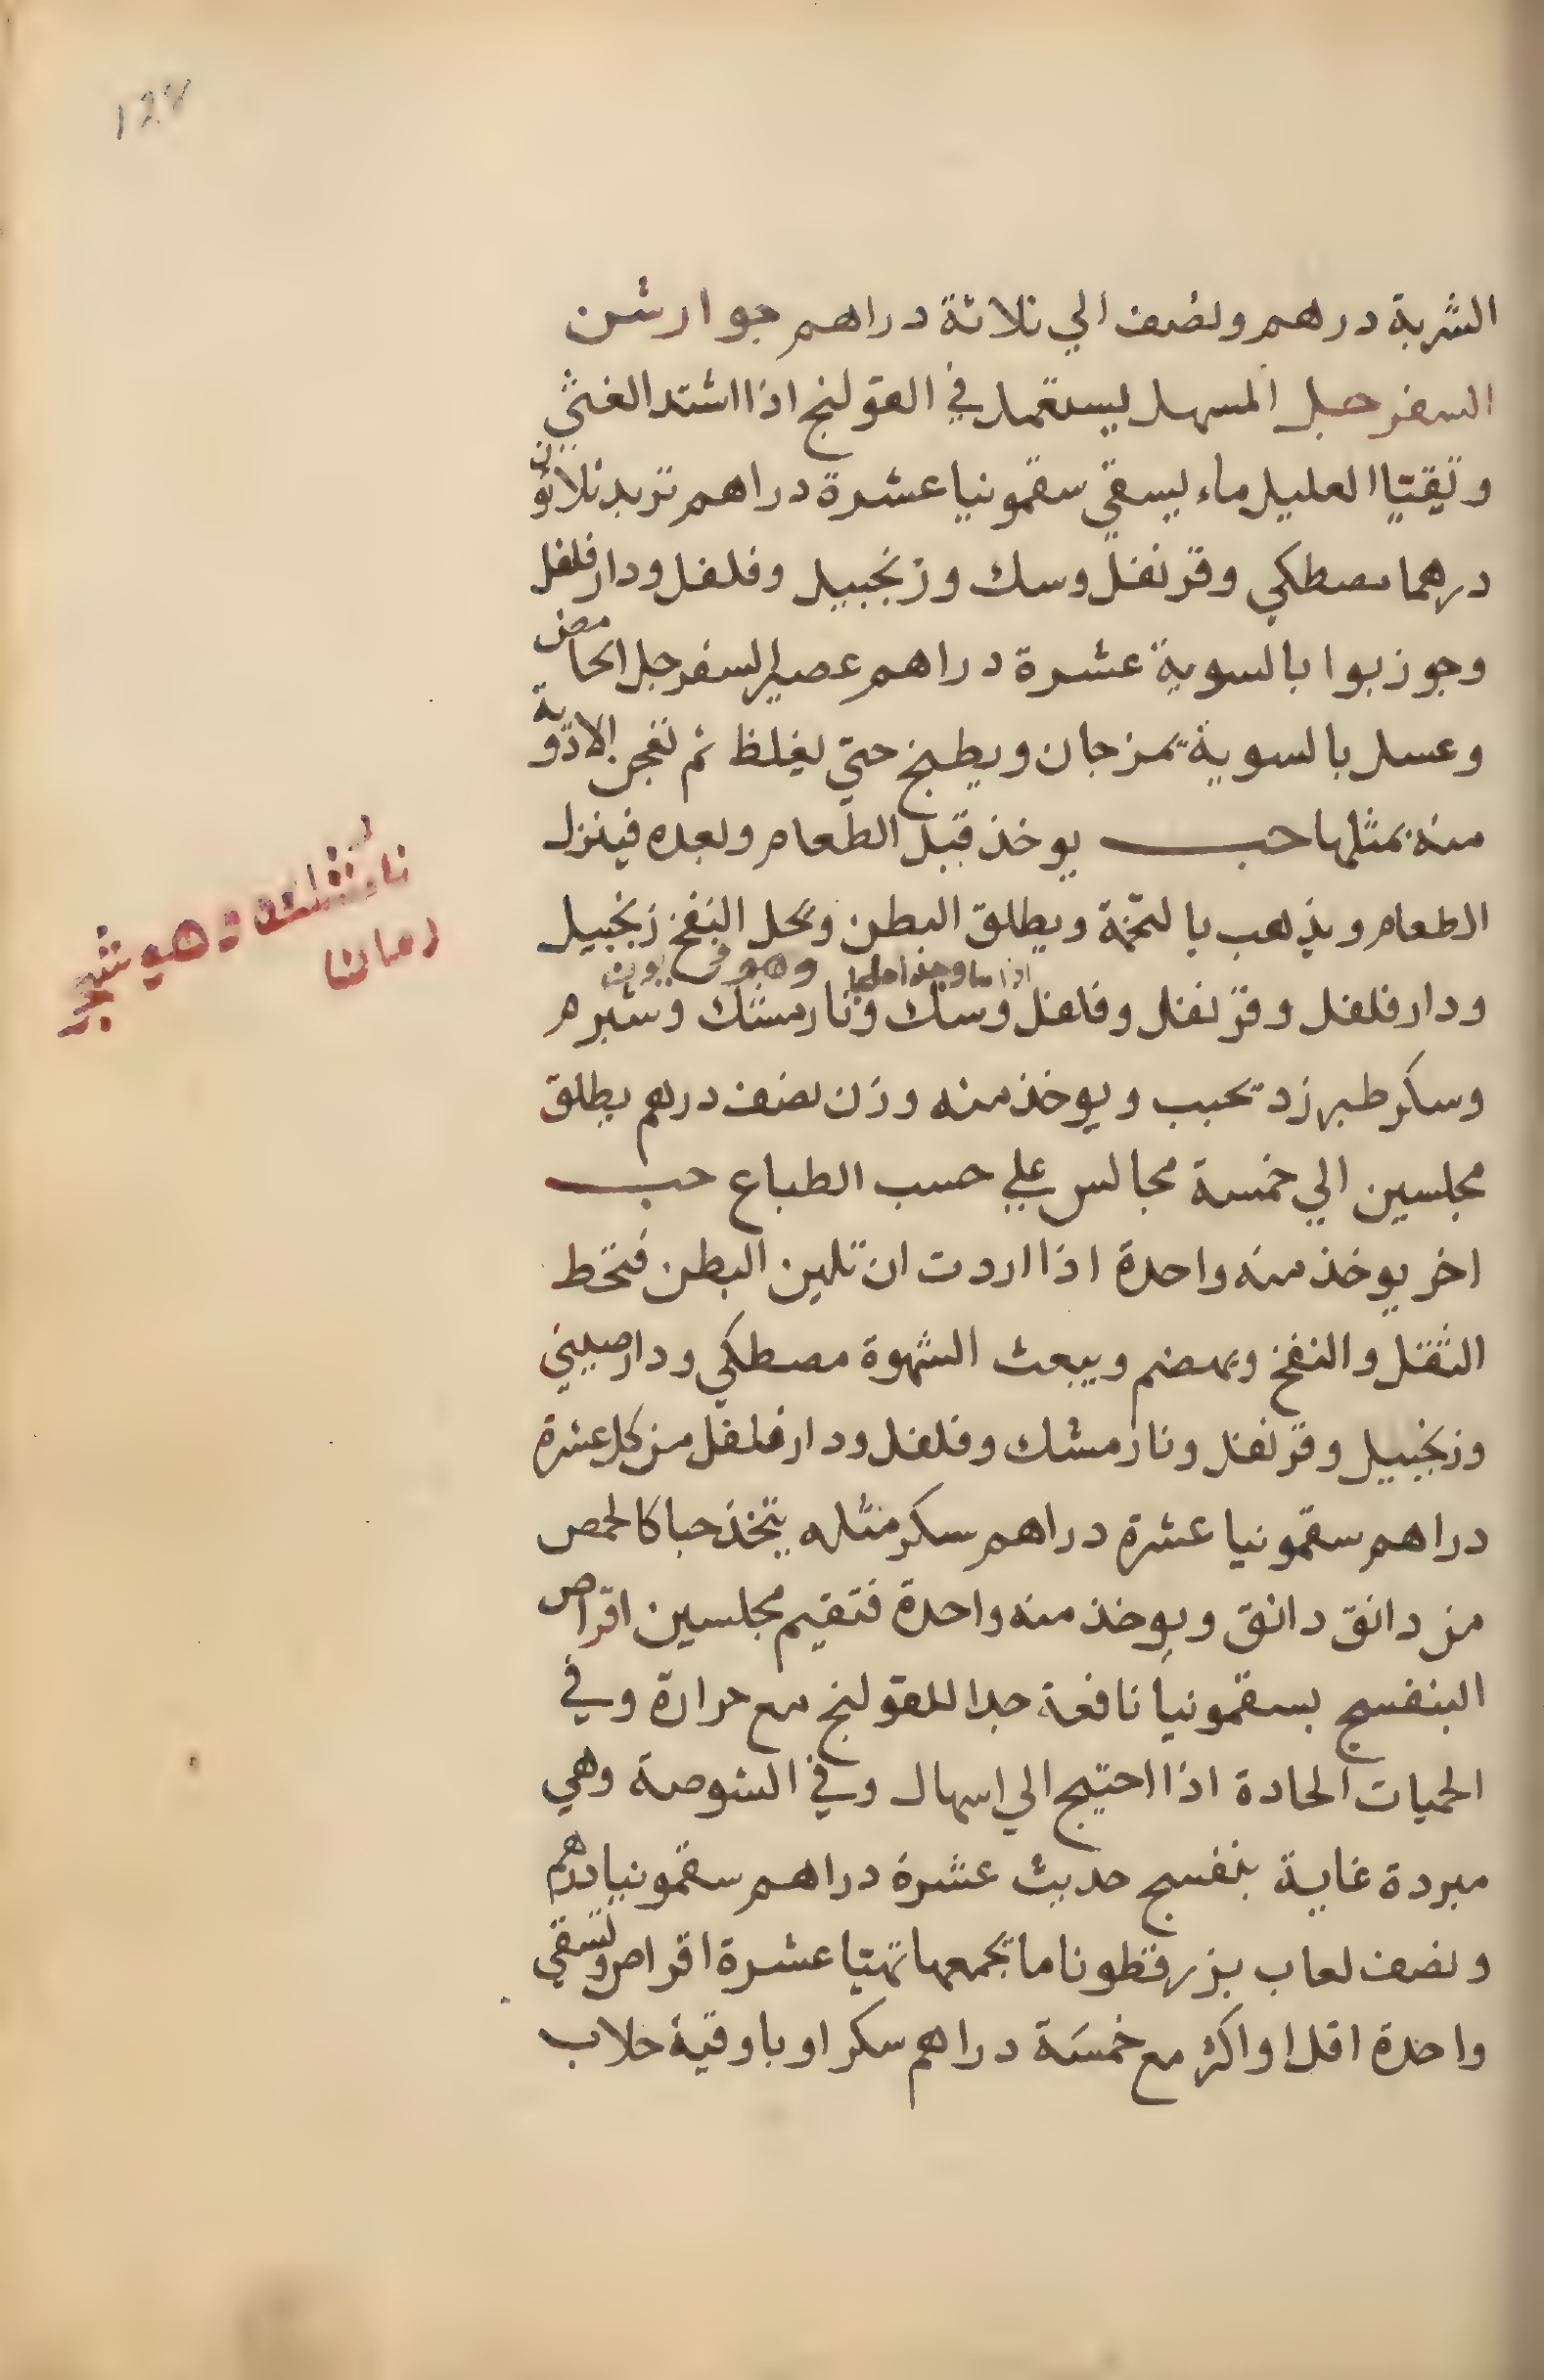 128
الشربة درهم ونصف الي ثلاثة دراهم جوارشن
السفرجل المسهل يستعمل في القولنج اذا اشتد الغثي
وتقيّا العليل ماء يسقي سقمونيا عشرة دراهم تربد ثلاثون
درهما مصطكي وقرنفل وسك وزنجبيل وفلفل ودارفلفل
وجوزبوا بالسوية عشرة دراهم عصير السفرجل الحامض
وعسل بالسوية يمزجان ويطبخ حتي يغلظ ثم تعجن الادوية
منه بمثلها حب يوخذ قبل الطعام وبعده فينزل
الطعام ويذهب بالتخمة ويطلق البطن ويحل النفخ زنجبيل
ودارفلفل وقرنفل وفلفل وسك ونارمشك وشبرم
وسكر طبرزد تحبب ويوخذ منه وزن نصف درهم يطلق
مجلسين الي خمسة مجالس علي حسب الطباع حب
اخر يوخذ منه واحدة اذا اردت ان تلين البطن فتحط
الثقل والنفخ ويهضم ويبعث الشهوة مصطكي ودارصيني
وزنجبيل وقرنفل ونارمشك وفلفل ودارفلفل من كل عشرة
دراهم سقمونيا عشرة دراهم سكر مثله يتخذ حبا كالحمص
من دانق دانق ويوخذ منه واحدة فتقيم مجلسين اقراص
البنفسج بسقمونيا نافعة جدا للقولنج مع حرارة وفي
الحميات الحادة اذا احتيج الي اسهال وفي الشوصة وهي
مبردة غاية بنفسج حديث عشرة دراهم سقمونيا درهم
ونصف لعاب بزرقطونا ما تجمعها تهيا عشرة اقراص وتسقي
واحدة اقل او اكثر مع خمسَة دراهم سكر او باوقية جلاب
وهو شجر
رمان